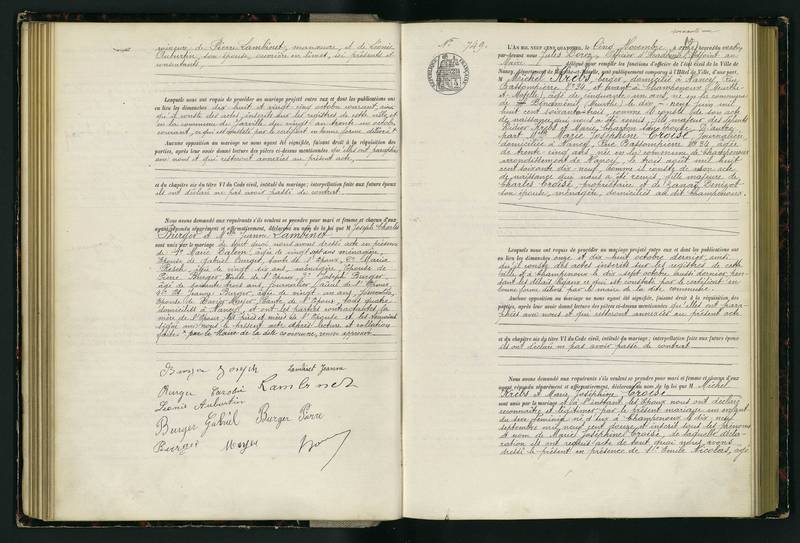 mineure de Pierre Lambinet, manœuvre, et de Léonie
Aubertin, son épouse, ouvrière en livret, ici présents et
consentants.
Lesquels nous ont requis de procéder au mariage projeté entre eux et dont les publications ont
eu lieu les dimanches dix huit et vingt cinq octobre courant, ainsi
qu'il conste des actes inscrits sur les registres de cette ville et
en la commune de Jarville du vingt au trente un octobre
courant, ce qui est constaté par le certificat en bonne forme délivré
Aucune opposition au mariage ne nous ayant été signifiée, faisant droit à la réquisition des
parties, après leur avoir donné lecture des pièces ci-dessus mentionnées qu'elles ont paraphées
avec nous et qui resteront annexées au présent acte
et du chapitre six du titre VI du Code civil, intitulé du mariage; interpellation faite aux futurs époux
ils ont déclaré ne pas avoir passé de contrat
Nous avons demandé aux requérants s'ils veulent se prendre pour mari et femme et chacun d'eux
ayant répondu séparément et affirmativement, déclarons au nom de la loi que M Joseph Charles
Burger et Mlle Jeanne Lambinet
sont unis par le mariage de tout quoi nous avons dressé acte en présence
de 1° Marie Salem, âgée de vingt sept ans, ménagère,
épouse de Gabriel Burger, tante de l'époux, 2° Maria
âgée de vingt six ans, ménagère, épouse de
Pierre Burger, tante de l'époux, 3° Joseph Burger,
âgé de soixante trois ans, journalier, aïeul de l'époux
4° Jeanne Burger, âgée de vingt un ans,
épouse de Meyer, tante de l'époux, tous quatre
domiciliés à Nancy, et ont les parties contractantes, la
mère de l'époux, les père et mère de l'épouse et les témoins
signé avec nous le présent acte après lecture et collation
faite * par le Maire de la dite commune, renvoi approuvé
Burger Joseph Lambinet Jeanne
Burger Lambinet
Léonie Aubertin
Burger Gabriel Burger Pierre
Burger Meyer
N° 749.
L'AN MIL NEUF CENT QUATORZE, le cinq Novembre à onze heures du matin
par-devant nous Jules Dorez, Officier d'Académie, Adjoint au
Maire délégué pour remplir les fonctions d'officier de l'état civil de la Ville de
Nancy, département de Meurthe-et-Moselle, sont publiquement comparus à l'Hôtel de Ville, d'une part,
M Michel Krebs, berger, domicilié à Nancy, rue
Bassompierre N° 24 et avant à Champenoux (Meurthe-
et-Moselle), âgé de cinquante un ans, né en la commune
de Bénaménil (Meurthe) le dix-neuf juin mil
huit cent soixante-trois, comme il conste de son acte
de naissance qui nous a été remis, fils majeur des défunts
Didier Krebs et Marie son épouse; D'autre
part Mlle Marie Joséphine Croisé, journalière,
domiciliée à Nancy, rue Bassompierre N° 24, âgée
de trente-cinq ans, née en la commune de Champenoux
arrondissement de Nancy, le trois août mil huit
cent soixante dix neuf, comme il conste de son acte
de naissance que nous a été remis, fille majeure de
Charles Croisé, propriétaire et de
son épouse, ménagère, domiciliés au dit Champenoux.
Lesquels nous ont requis de procéder au mariage projeté entre eux et dont les publications ont
eu lieu les dimanches onze et dix-huit octobre dernier, ainsi
qu'il conste des actes inscrits sur les registres de cette
ville et à Champenoux le dix sept octobre aussi dernier pen-
dant les délais légaux ce qui est constaté par le certificat en
bonne forme délivré par le maire de la dite commune.
Aucune opposition au mariage ne nous ayant été signifiée, faisant droit à la réquisition des
parties, après leur avoir donné lecture des pièces ci-dessus mentionnées qu'elles ont para-
phées avec nous et qui resteront annexées au présent acte
et du chapitre six du titre VI du Code civil, intitulé du mariage; interpellation faite aux futurs époux
ils ont déclaré ne pas avoir passé de contrat
Nous avons demandé aux requérants s'ils veulent se prendre pour mari et femme et chacun d'eux
ayant répondu séparément et affirmativement, déclarons au nom de la loi que M Michel
Krebs et Marie Joséphine Croisé
sont unis par le mariage et à l'instant les époux nous ont déclaré
reconnaître et légitimer par le présent mariage un enfant
du sexe féminin né d'eux à Champenoux le dix neuf
septembre mil neuf cent douze et inscrit sous les prénoms
et nom de Marie Joséphine Croisé, de laquelle décla-
ration ils ont requis acte de tout quoi nous avons
dressé le présent en présence de 1° Emile Nicolas, âgé